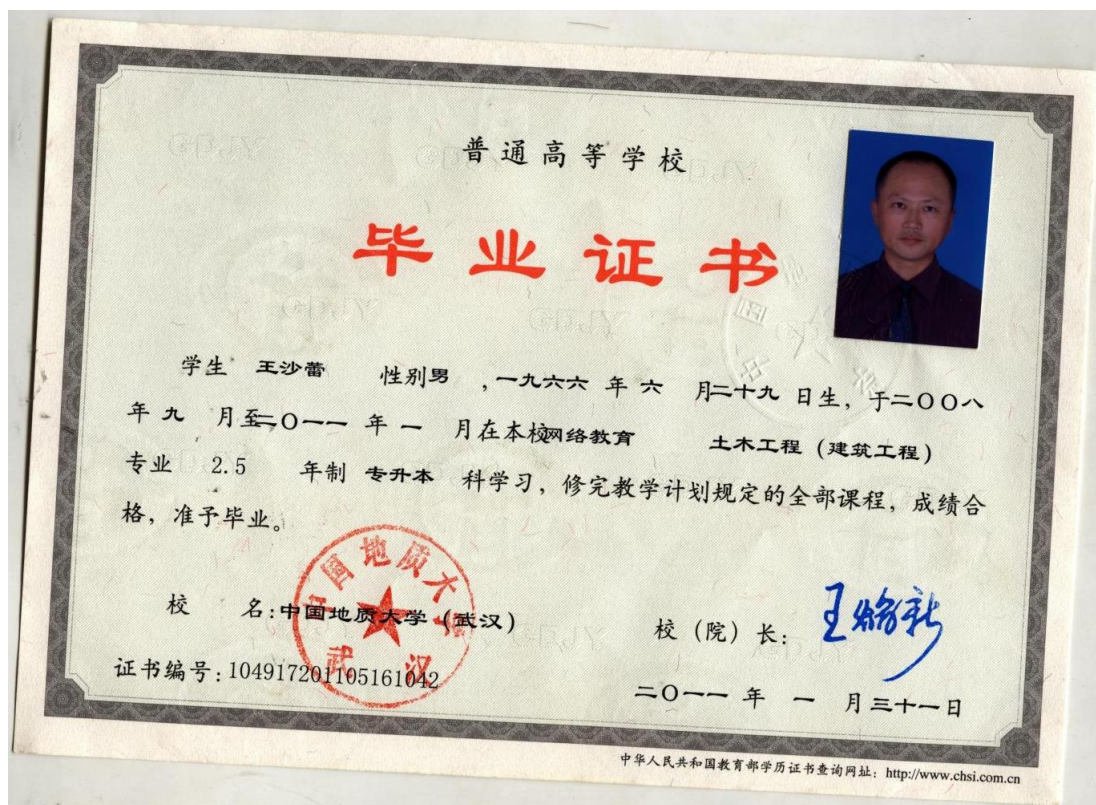 普通高等学校
毕业证书
学生 王沙蕾 性别男 ,一九六六 年 六 月二十九 日生, 于二〇〇八
年 九 月至二〇一一 年 一 月在本校网络教育 土木工程（建筑工程）
专业 2.5 年制 专升本 科学习, 修完教学计划规定的全部课程, 成绩合
格, 准予毕业。
中国地质大学
武汉
校 名:中国地质大学（武汉）
校（院）长:
证书编号:104917201105161042
二〇一一 年 一 月三十一日
中华人民共和国教育部学历证书查询网址: http://www.chsi.com.cn